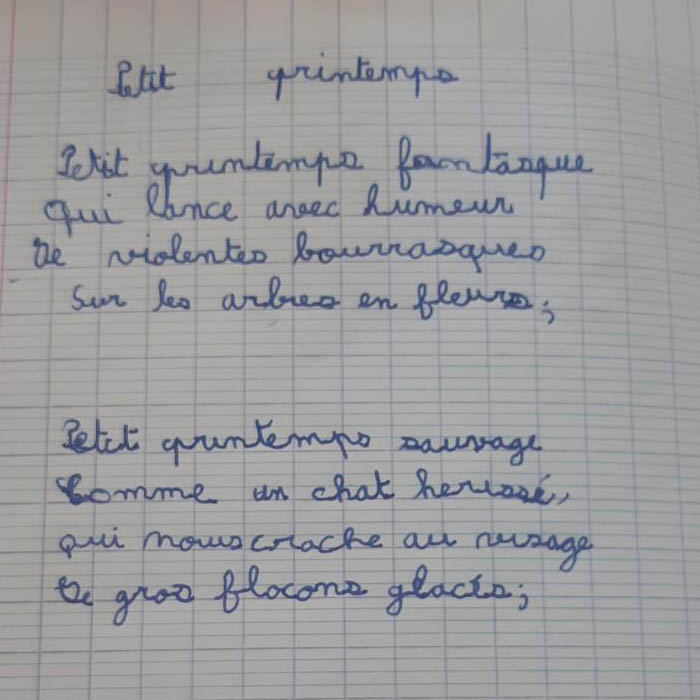 Petit printemps
Petit printemps fantasque
Qui lance avec humeur
De violentes bourrasques
Sur les arbres en fleurs;
Petit printemps sauvage
Comme un chat herissé,
qui nous crache au visage
De gros flocons glacés;